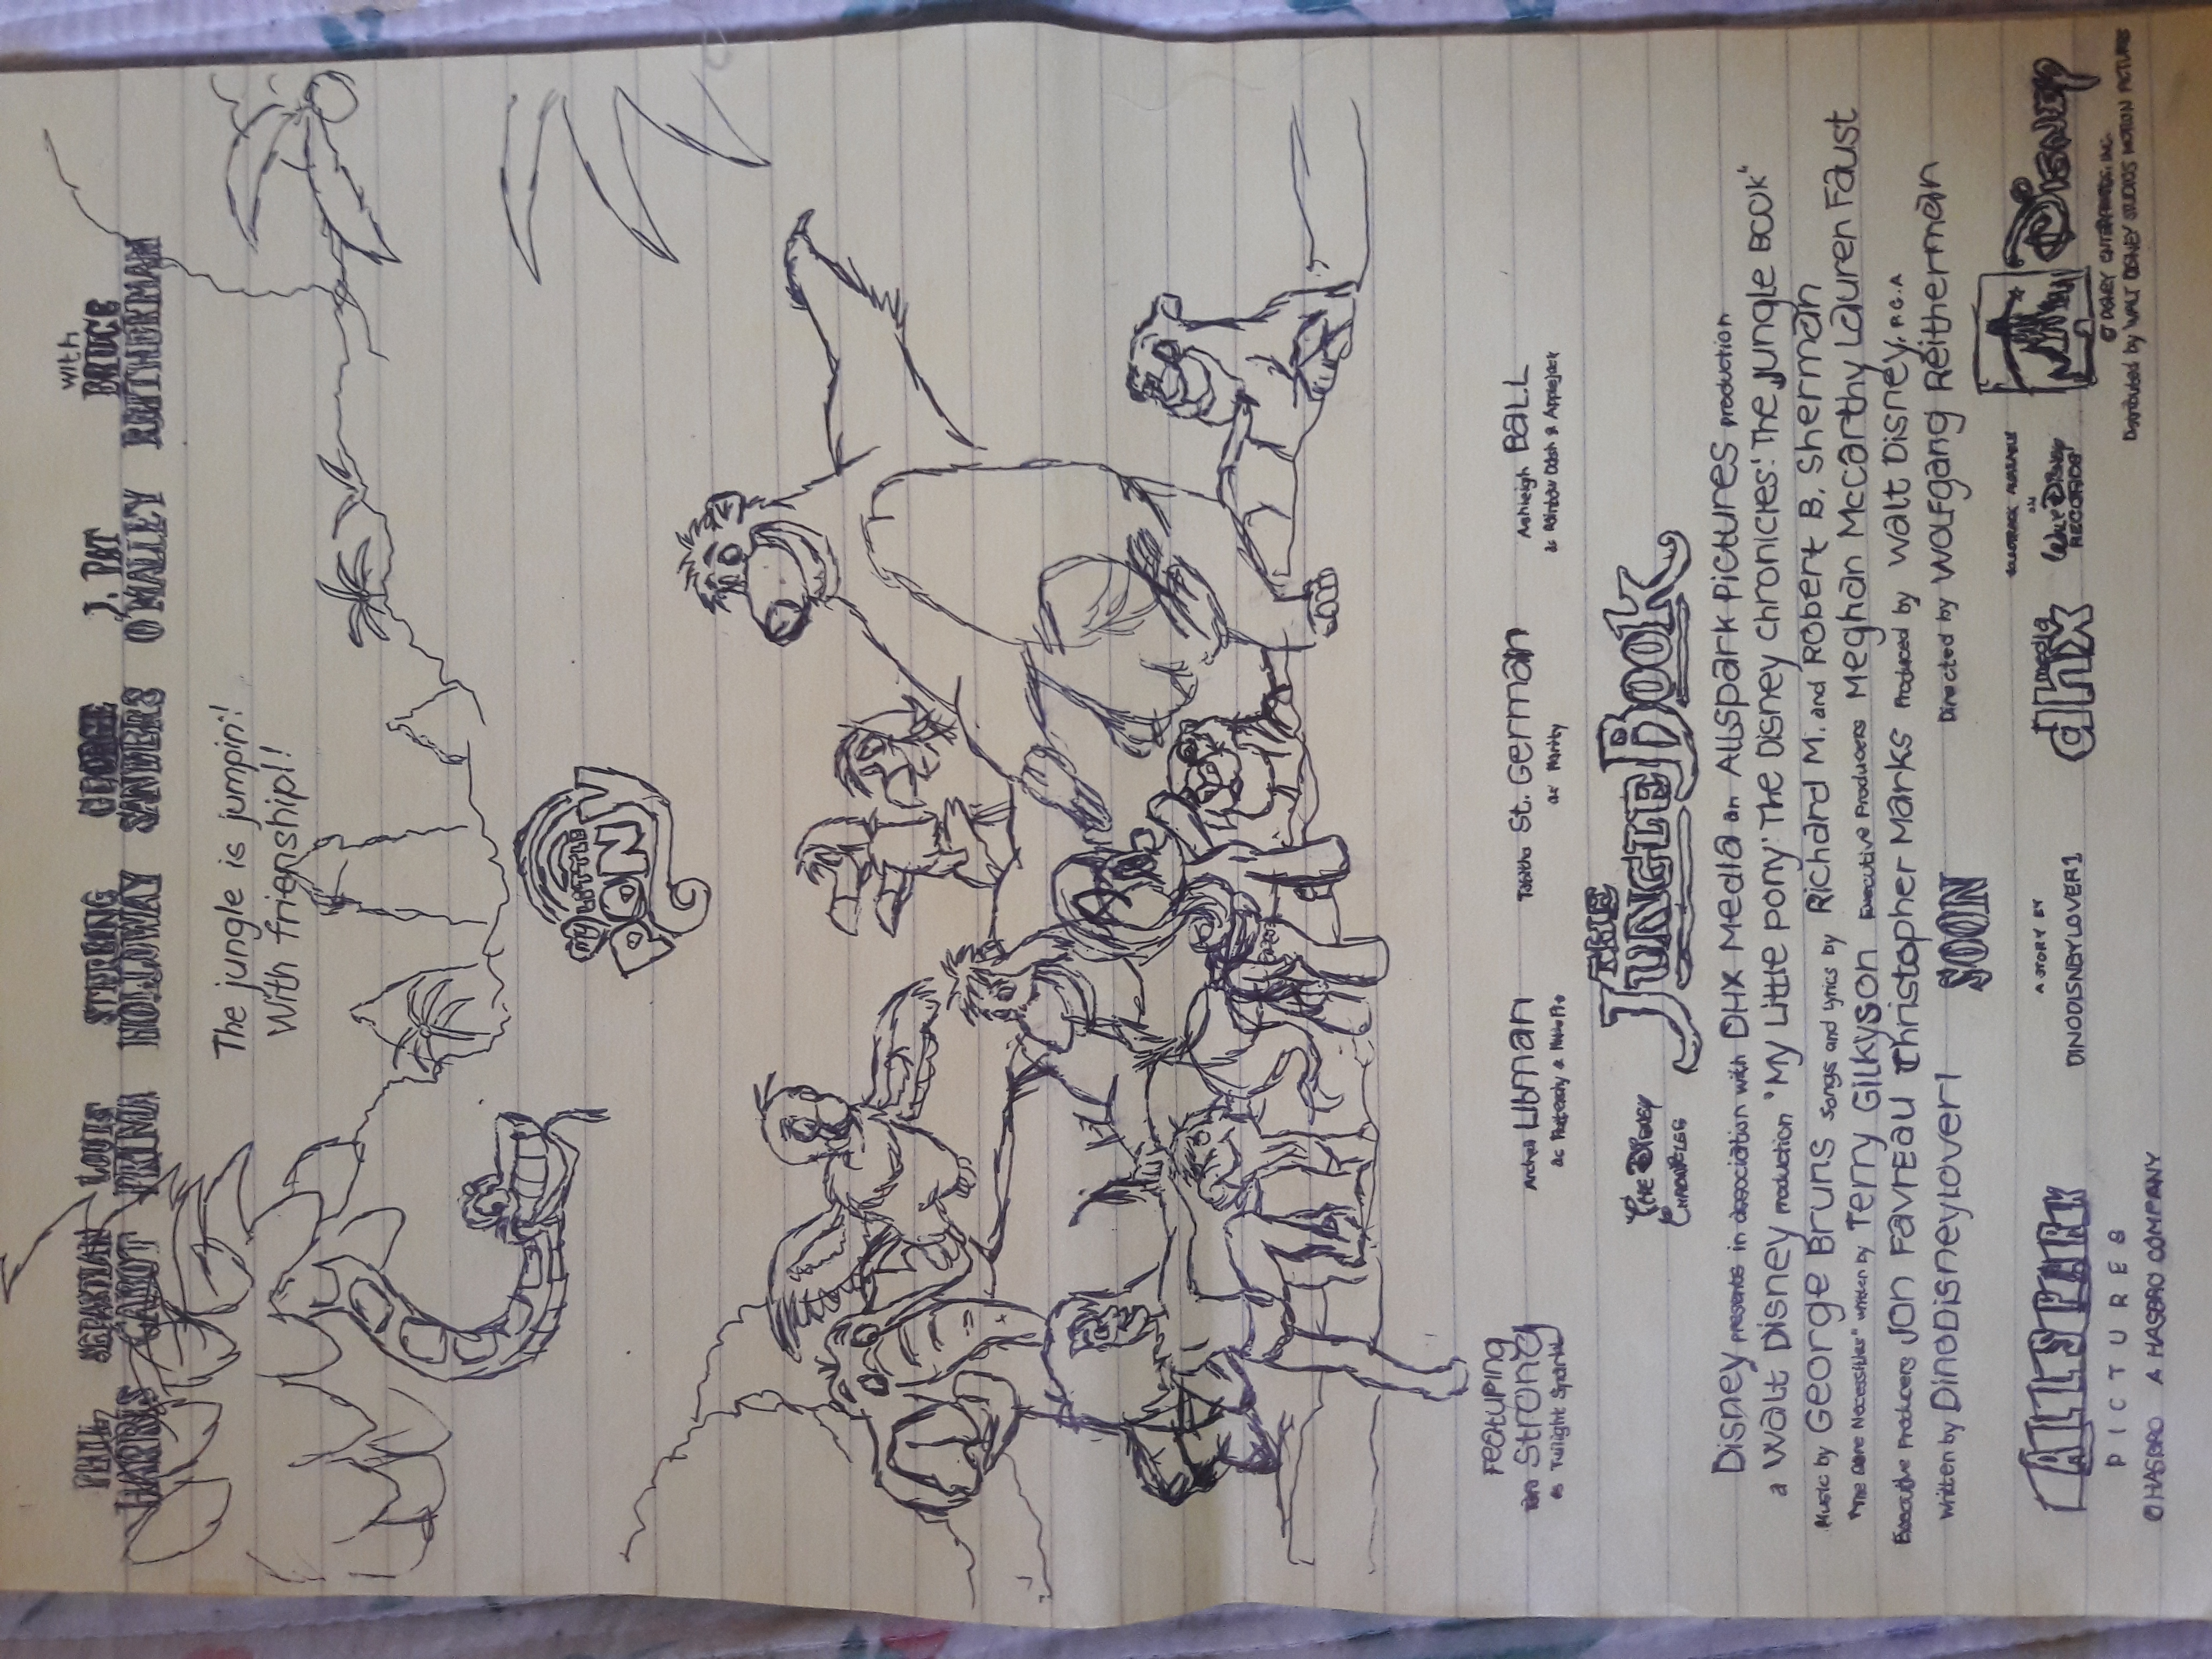 with
PHIL SEBASTIAN LOUIS STERLING GEORGE J. PAT BRUCE
HARRIS CABOT PRIMA HOLLOWAY SANDERS O'MALLEY REITHERMAN
The jungle is jumpin'!
With friendship!!
my LITTLE
PONY
Featuring
Tara Strong Andrea Libman Tabitha St. German Ashleigh Ball
as Twilight Sparkle as Pinkie Pie as Rarity as Rainbow Dash & Applejack
The Disney Chronicles
THE
JUNGLE BOOK
Disney presents in association with DHX Media an Allspark Pictures production
a Walt Disney production "My Little pony: The Disney Chronicles: The Jungle Book"
Music by George Bruns Songs and Lyrics by Richard M. and Robert B. Sherman
"The Bare Necessities" written by Terry Gilkyson Executive Producers Meghan McCarthy Lauren Faust
Executive Producers Jon Favreau Christopher Marks Produced by Walt Disney, P.G.A
Written by DinoDisneylover1 Directed by Wolfgang Reitherman
SOON
ALLSPARK
PICTURES
©HASBRO A HASBRO COMPANY
A STORY BY
DINODISNEYLOVER1
dhx media
SOUNDTRACK AVAILABLE
ON
WALT DISNEY
RECORDS
Disney
© DISNEY ENTERPRISES, INC.
Distributed by WALT DISNEY STUDIOS MOTION PICTURES